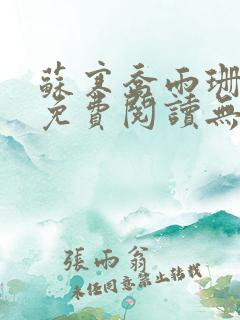 蘇寒喬雨珊
免費閱讀無
張雨翁
未經同意禁止轉載